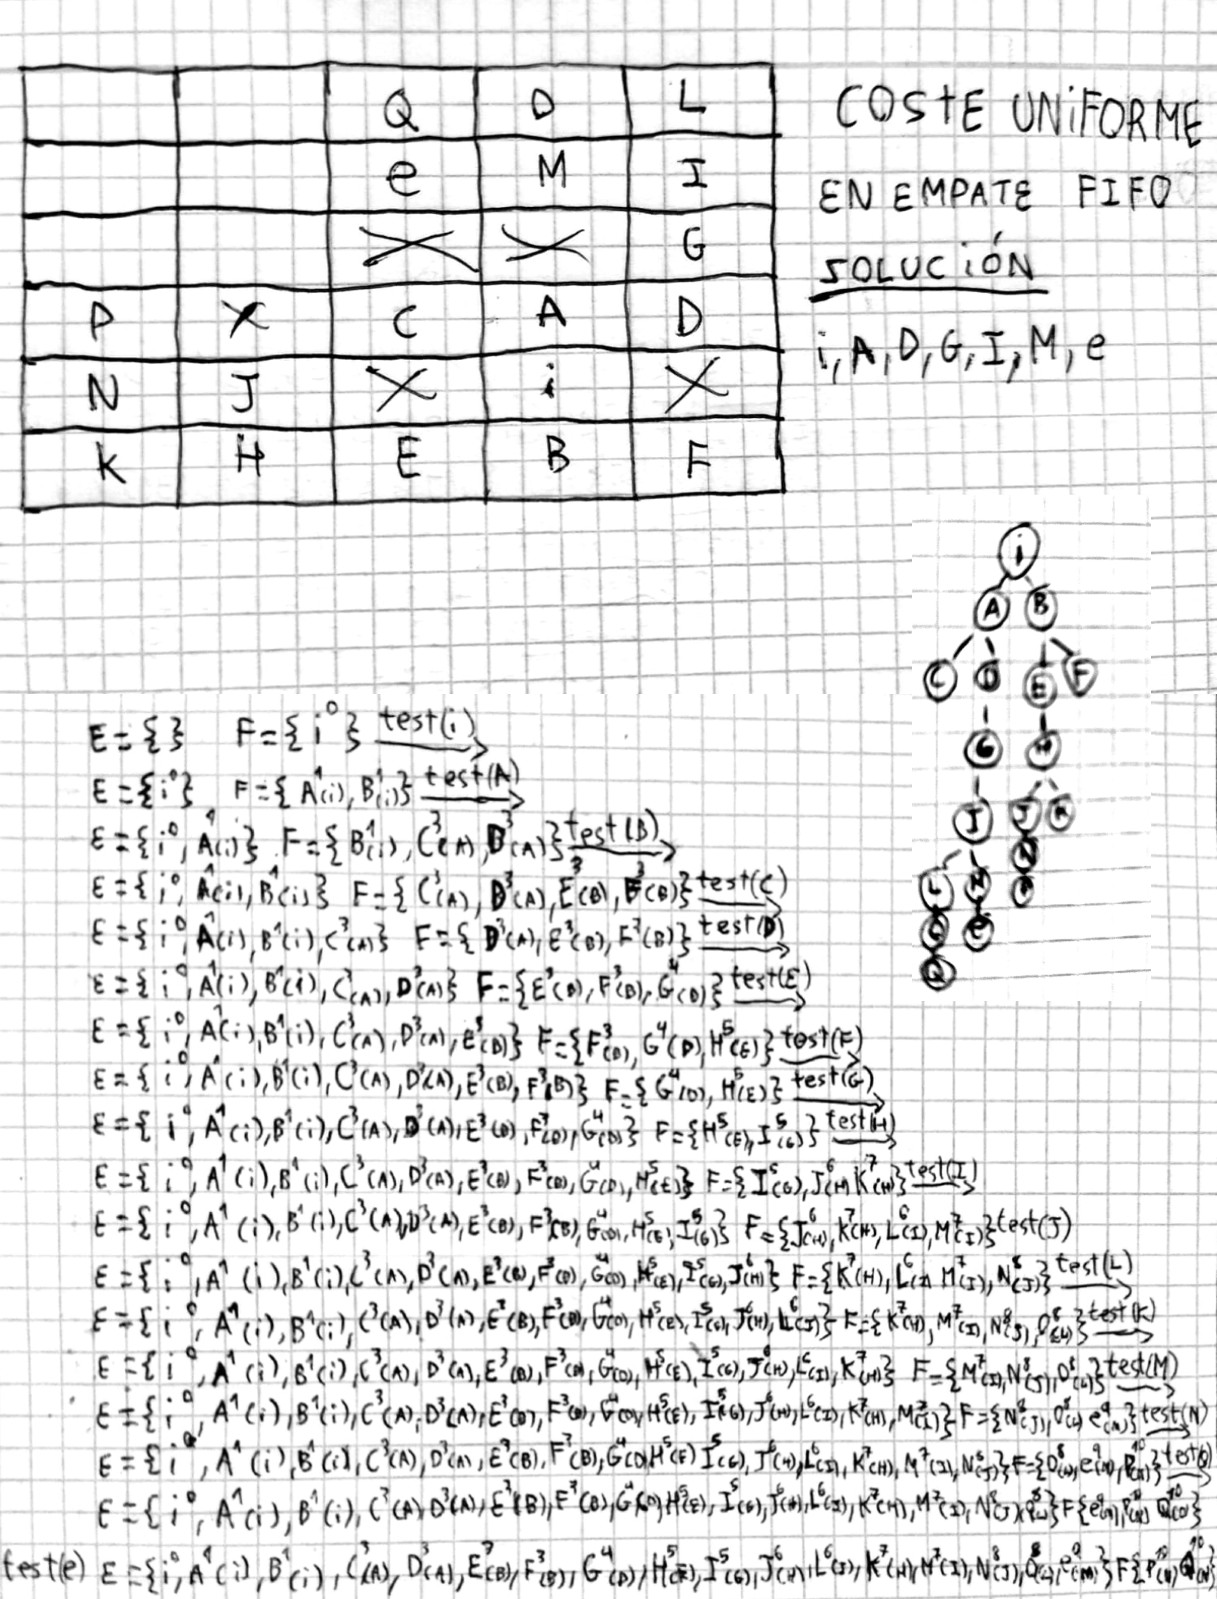 Q D L
e M I
X X G
P X C A D
N J X i X
K H E B F
COSTE UNIFORME
EN EMPATE FIFO
SOLUCIÓN
i, A, D, G, I, M, e
i
A B
C D E F
G H
I J K
L M N
e
Q
E={} F={i⁰} test(i)
E={i⁰} F={A¹(i), B¹(i)} test(A)
E={i⁰, A¹(i)} F={B¹(i), C³(A), D³(A)} test(B)
E={i⁰, A¹(i), B¹(i)} F={C³(A), D³(A), E³(B), F³(B)} test(C)
E={i⁰, A¹(i), B¹(i), C³(A)} F={D³(A), E³(B), F³(B)} test(D)
E={i⁰, A¹(i), B¹(i), C³(A), D³(A)} F={E³(B), F³(B), G⁴(D)} test(E)
E={i⁰, A¹(i), B¹(i), C³(A), D³(A), E³(B)} F={F³(B), G⁴(D), H⁵(E)} test(F)
E={i⁰, A¹(i), B¹(i), C³(A), D³(A), E³(B), F³(B)} F={G⁴(D), H⁵(E)} test(G)
E={i⁰, A¹(i), B¹(i), C³(A), D³(A), E³(B), F³(B), G⁴(D)} F={H⁵(E), I⁵(G)} test(H)
E={i⁰, A¹(i), B¹(i), C³(A), D³(A), E³(B), F³(B), G⁴(D), H⁵(E)} F={I⁵(G), J⁶(H), K⁷(H)} test(I)
E={i⁰, A¹(i), B¹(i), C³(A), D³(A), E³(B), F³(B), G⁴(D), H⁵(E), I⁵(G)} F={J⁶(H), K⁷(H), L⁶(I), M⁷(I)} test(J)
E={i⁰, A¹(i), B¹(i), C³(A), D³(A), E³(B), F³(B), G⁴(D), H⁵(E), I⁵(G), J⁶(H)} F={K⁷(H), L⁶(I), M⁷(I), N⁸(J)} test(L)
E={i⁰, A¹(i), B¹(i), C³(A), D³(A), E³(B), F³(B), G⁴(D), H⁵(E), I⁵(G), J⁶(H), L⁶(I)} F={K⁷(H), M⁷(I), N⁸(J), O⁸(L)} test(K)
E={i⁰, A¹(i), B¹(i), C³(A), D³(A), E³(B), F³(B), G⁴(D), H⁵(E), I⁵(G), J⁶(H), L⁶(I), K⁷(H)} F={M⁷(I), N⁸(J), O⁸(L)} test(M)
E={i⁰, A¹(i), B¹(i), C³(A), D³(A), E³(B), F³(B), G⁴(D), H⁵(E), I⁵(G), J⁶(H), L⁶(I), K⁷(H), M⁷(I)} F={N⁸(J), O⁸(L), e⁹(M)} test(N)
E={i⁰, A¹(i), B¹(i), C³(A), D³(A), E³(B), F³(B), G⁴(D), H⁵(E), I⁵(G), J⁶(H), L⁶(I), K⁷(H), M⁷(I), N⁸(J)} F={O⁸(L), e⁹(M), P¹⁰(N)}
E={i⁰, A¹(i), B¹(i), C³(A), D³(A), E³(B), F³(B), G⁴(D), H⁵(E), I⁵(G), J⁶(H), L⁶(I), K⁷(H), M⁷(I), N⁸(J), O⁸(L)} F{e⁹(M), P¹⁰(N), Q¹⁰(O)}
test(e) E={i⁰, A¹(i), B¹(i), C³(A), D³(A), E³(B), F³(B), G⁴(D), H⁵(E), I⁵(G), J⁶(H), L⁶(I), K⁷(H), M⁷(I), N⁸(J), O⁸(L), e⁹(M)} F{P¹⁰(N), Q¹⁰